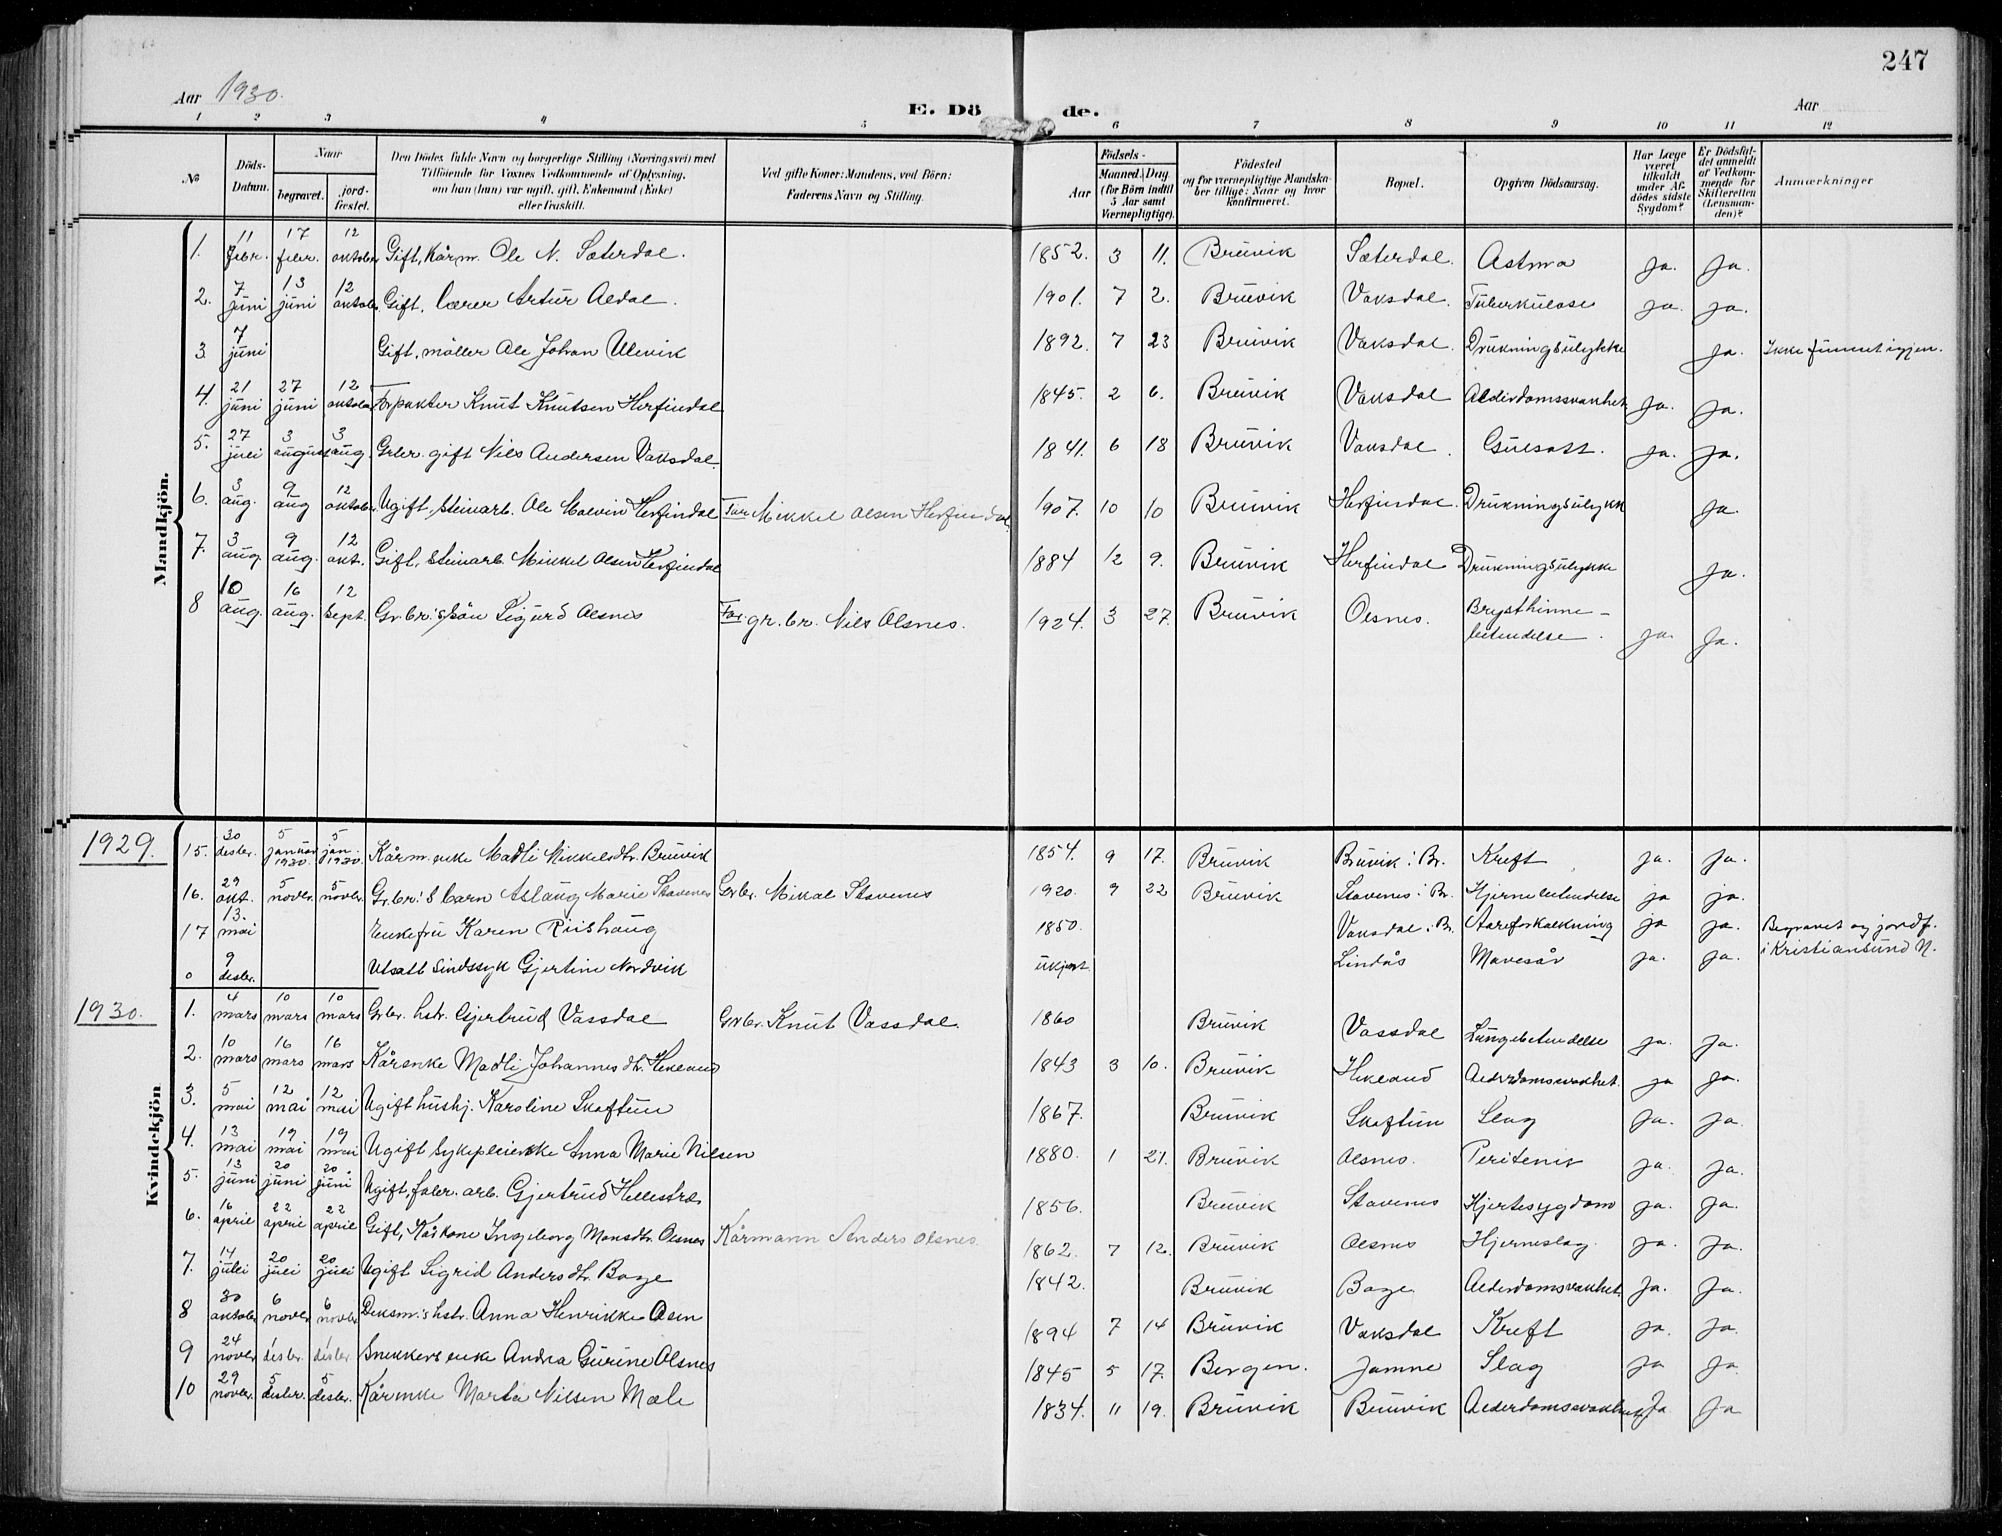 247
Aar 1930.
E. Dö de.
Aar
1 2 3 4 5 6 7 8 9 10 11 12
No
Döds-Datum.
Naar
begravet.
jord-fæstet.
Den Dödes fulde Navn og borgerlige Stilling (Næringsvei) med
Tilföiende for Voxnes Vedkommende af Oplysning,
om han (hun) var ugift, gift, Enkemand (Enke)
eller fraskilt.
Ved gifte Koner: Mandens, ved Börn:
Faderens Navn og Stilling.
Födsels-
Aar
Maaned. Dag
(for Börn indtil
5 Aar samt
Værnepligtige).
Födested
og for værnepligtige Mandska-
ber tillige: Naar og hvor
konfirmeret.
Bopæl.
Opgiven Dödsaarsag.
Har Læge
været
tilkaldt
under Af-
dödes sidste
Sygdom?
Er Dödsfal-
det anmeldt
af Vedkom-
mende for
Skifteretten
(Lensman-
den)?
Anmærkninger
Mandkjön.
1. 11 febr. 17 febr. 12 oktober Gift, Kårm. Ole N. Sæterdal. 1852. 3 11. Bruvik Sæterdal. Astma ja. ja.
2. 7 juni 13 juni 12 oktober Gift, Lærer Artur Aldal. 1901. 7 2. Bruvik Vaksdal. Tuberkulose ja. ja.
3. 7 juni Gift, möller Ole Johan Ulevik 1892. 7 23 Bruvik Vaksdal. Drukningsulykke ja. Ikke funnet igjen.
4. 21 juni 27 juni 12 oktober Forpakter Knut Knutsen Herfindal 1845. 2 6. Bruvik Vaksdal Alderdomssvakhet ja. ja.
5. 27 juli 3 august 3 aug. Grbr. gift Nils Andersen Vaksdal. 1841. 6 18 Bruvik Vaksdal. Gulsott. ja. ja.
6. 3 aug. 9 aug 12 oktober Ugift, steinarb. Ole Malvin Herfindal Far Mikkel Olsen Herfindal. 1907. 10 10 Bruvik Herfindal. Drukningsulykk ja.
7. 3 aug. 9 aug. 12 okt. Gift, steinarb. Mikkel Olsen Herfindal 1884 12 9. Bruvik Herfindal Drukningsulykke ja.
8 10 aug. 16 aug. 12 sept. Gr.br.s sön Sigurd Olsnes Far gr.br. Nils Olsnes. 1924. 3 27. Bruvik Olsnes. Brysthinne-
betendelse. ja. ja.
Kvindekjön
1929. 15. 30 desbr. 5 januar 1930. 5 jan. 1930. Kårm. enke Madli Mikkelsdtr. Bruvik 1854. 9 17. Bruvik Bruvik i Br. Kreft ja. ja.
16. 29 okt. 5 novbr. 5 novbr. Gr.br.s barn Aslaug Marie Stavenes Grbr. Mikal Stavenes 1920. 9 22 Bruvik Stavenes i Br. Hjernebetendelse ja ja.
17 13. mai Enkefru Karen Riishaug 1850. Vaksdal i Br. Aareforkalkning ja ja. Begravet og jordf.
i Kristiansund N.
0 9 desbr. Utsatt sindssyk Gjertine Nordvik ukjent Lindås Mavesår ja. ja.
1930. 1. 4 mars 10 mars 10 mars Grbr. hstr. Gjertrud Vassdal Grbr. Knut Vassdal. 1860 Bruvik Vassdal Lungebetendelse ja. ja.
2. 10 mars 16 mars 16 mars Kårenke Madli Johannesdtr. Hekland 1843 3 10. Bruvik Hekland Alderdomssvakhet. ja ja.
3. 5 mai 12 mai 12 mai Ugift hushj. Karoline Skaftun 1867. Bruvik Skaftun Slag ja. ja.
4. 13 mai 19 mai 19 mai Ugift sykepleierske Anna Marie Nilsen 1880. 1 21. Bruvik Olsnes. Peritenit ja. ja.
5. 13 juni 20 juni 20 juni Ugift, fabr. arb. Gjertrud Hellestræ 1856. Bruvik Stavenes Hjertesygdom ja. ja.
6. 16 april 22 april 22 april Gift, Kårkone Ingeborg Monsdtr. Olsnes Kårmann Anders Olsnes. 1862. 7 12. Bruvik Olsnes Hjerneslag ja. ja.
7. 14 juli 20 juli 20 juli Ugift Sigrid Andersdtr. Boge 1842. Bruvik Boge Alderdomsvakhet. Ja. ja.
8 30 oktober 6 novbr 6 novbr Deksm.s hstr. Anna Henrikke Olsen 1894 7 14 Bruvik Vaksdal Kreft ja. ja.
9 24 novbr 1 desbr. 1 desbr. Snekkers enke Andrea Gurine Olsnes 1845 5 17. Bergen. Jamne Slag ja ja.
10 29 novbr. 5 desbr. 5 desbr. Kårenke Marta Nilsen Mæle 1834. 11 19. Bruvik Bruvik Alderdomssvakhet Ja Ja